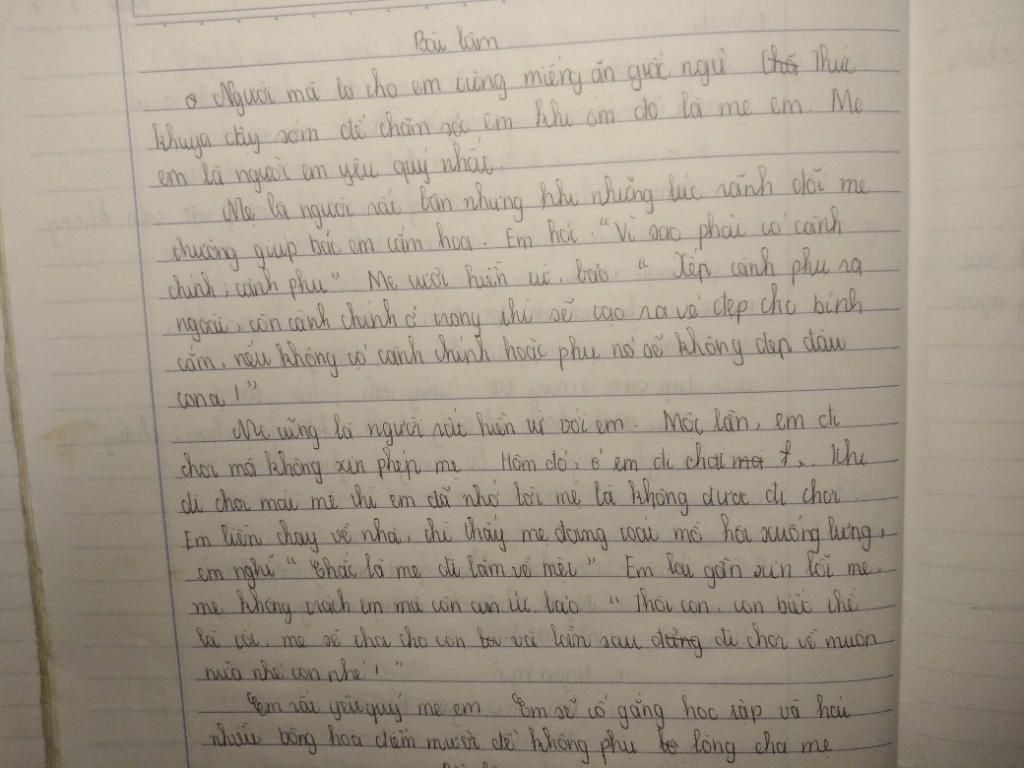 Bài làm
Người mà lo cho em từng miếng ăn giấc ngủ Thức
khuya dậy sớm để chăm sóc em khi ốm đó là mẹ em. Mẹ
em là người em yêu quý nhất.
Mẹ là người rất bận nhưng khi những lúc rảnh dỗi mẹ
thường giúp bắt em cắm hoa. Em hỏi: "Vì sao phải có cành
chính, cành phụ" Mẹ cười hiền từ, bảo: " Xếp cành phụ ra
ngoài, còn cành chính ở trong thì sẽ tạo ra vẻ đẹp cho bình
cắm, nếu không có cành chính hoặc phụ nó sẽ không đẹp đâu
con ạ!"
Mẹ cũng là người rất hiền từ với em. Một lần, em đi
chơi mà không xin phép mẹ Hôm đó, em đi chơi mà Khi
đi chơi mải mê thì em đã nhớ lời mẹ là không được đi chơi.
Em liền chạy về nhà, thì thấy mẹ đang toát mồ hôi xuống lưng,
em nghĩ "Chắc là mẹ đi làm về mệt" Em lại gần xin lỗi mẹ.
mẹ không trách em mà còn an ủi, bảo: "Thôi con, con biết thế
là tốt, mẹ sẽ tha cho con và lần sau đừng đi chơi về muộn
nữa nhé con nhé!"
Em rất yêu quý mẹ em Em sẽ cố gắng học tập và hái
nhiều bông hoa điểm mười để không phụ lòng cha mẹ